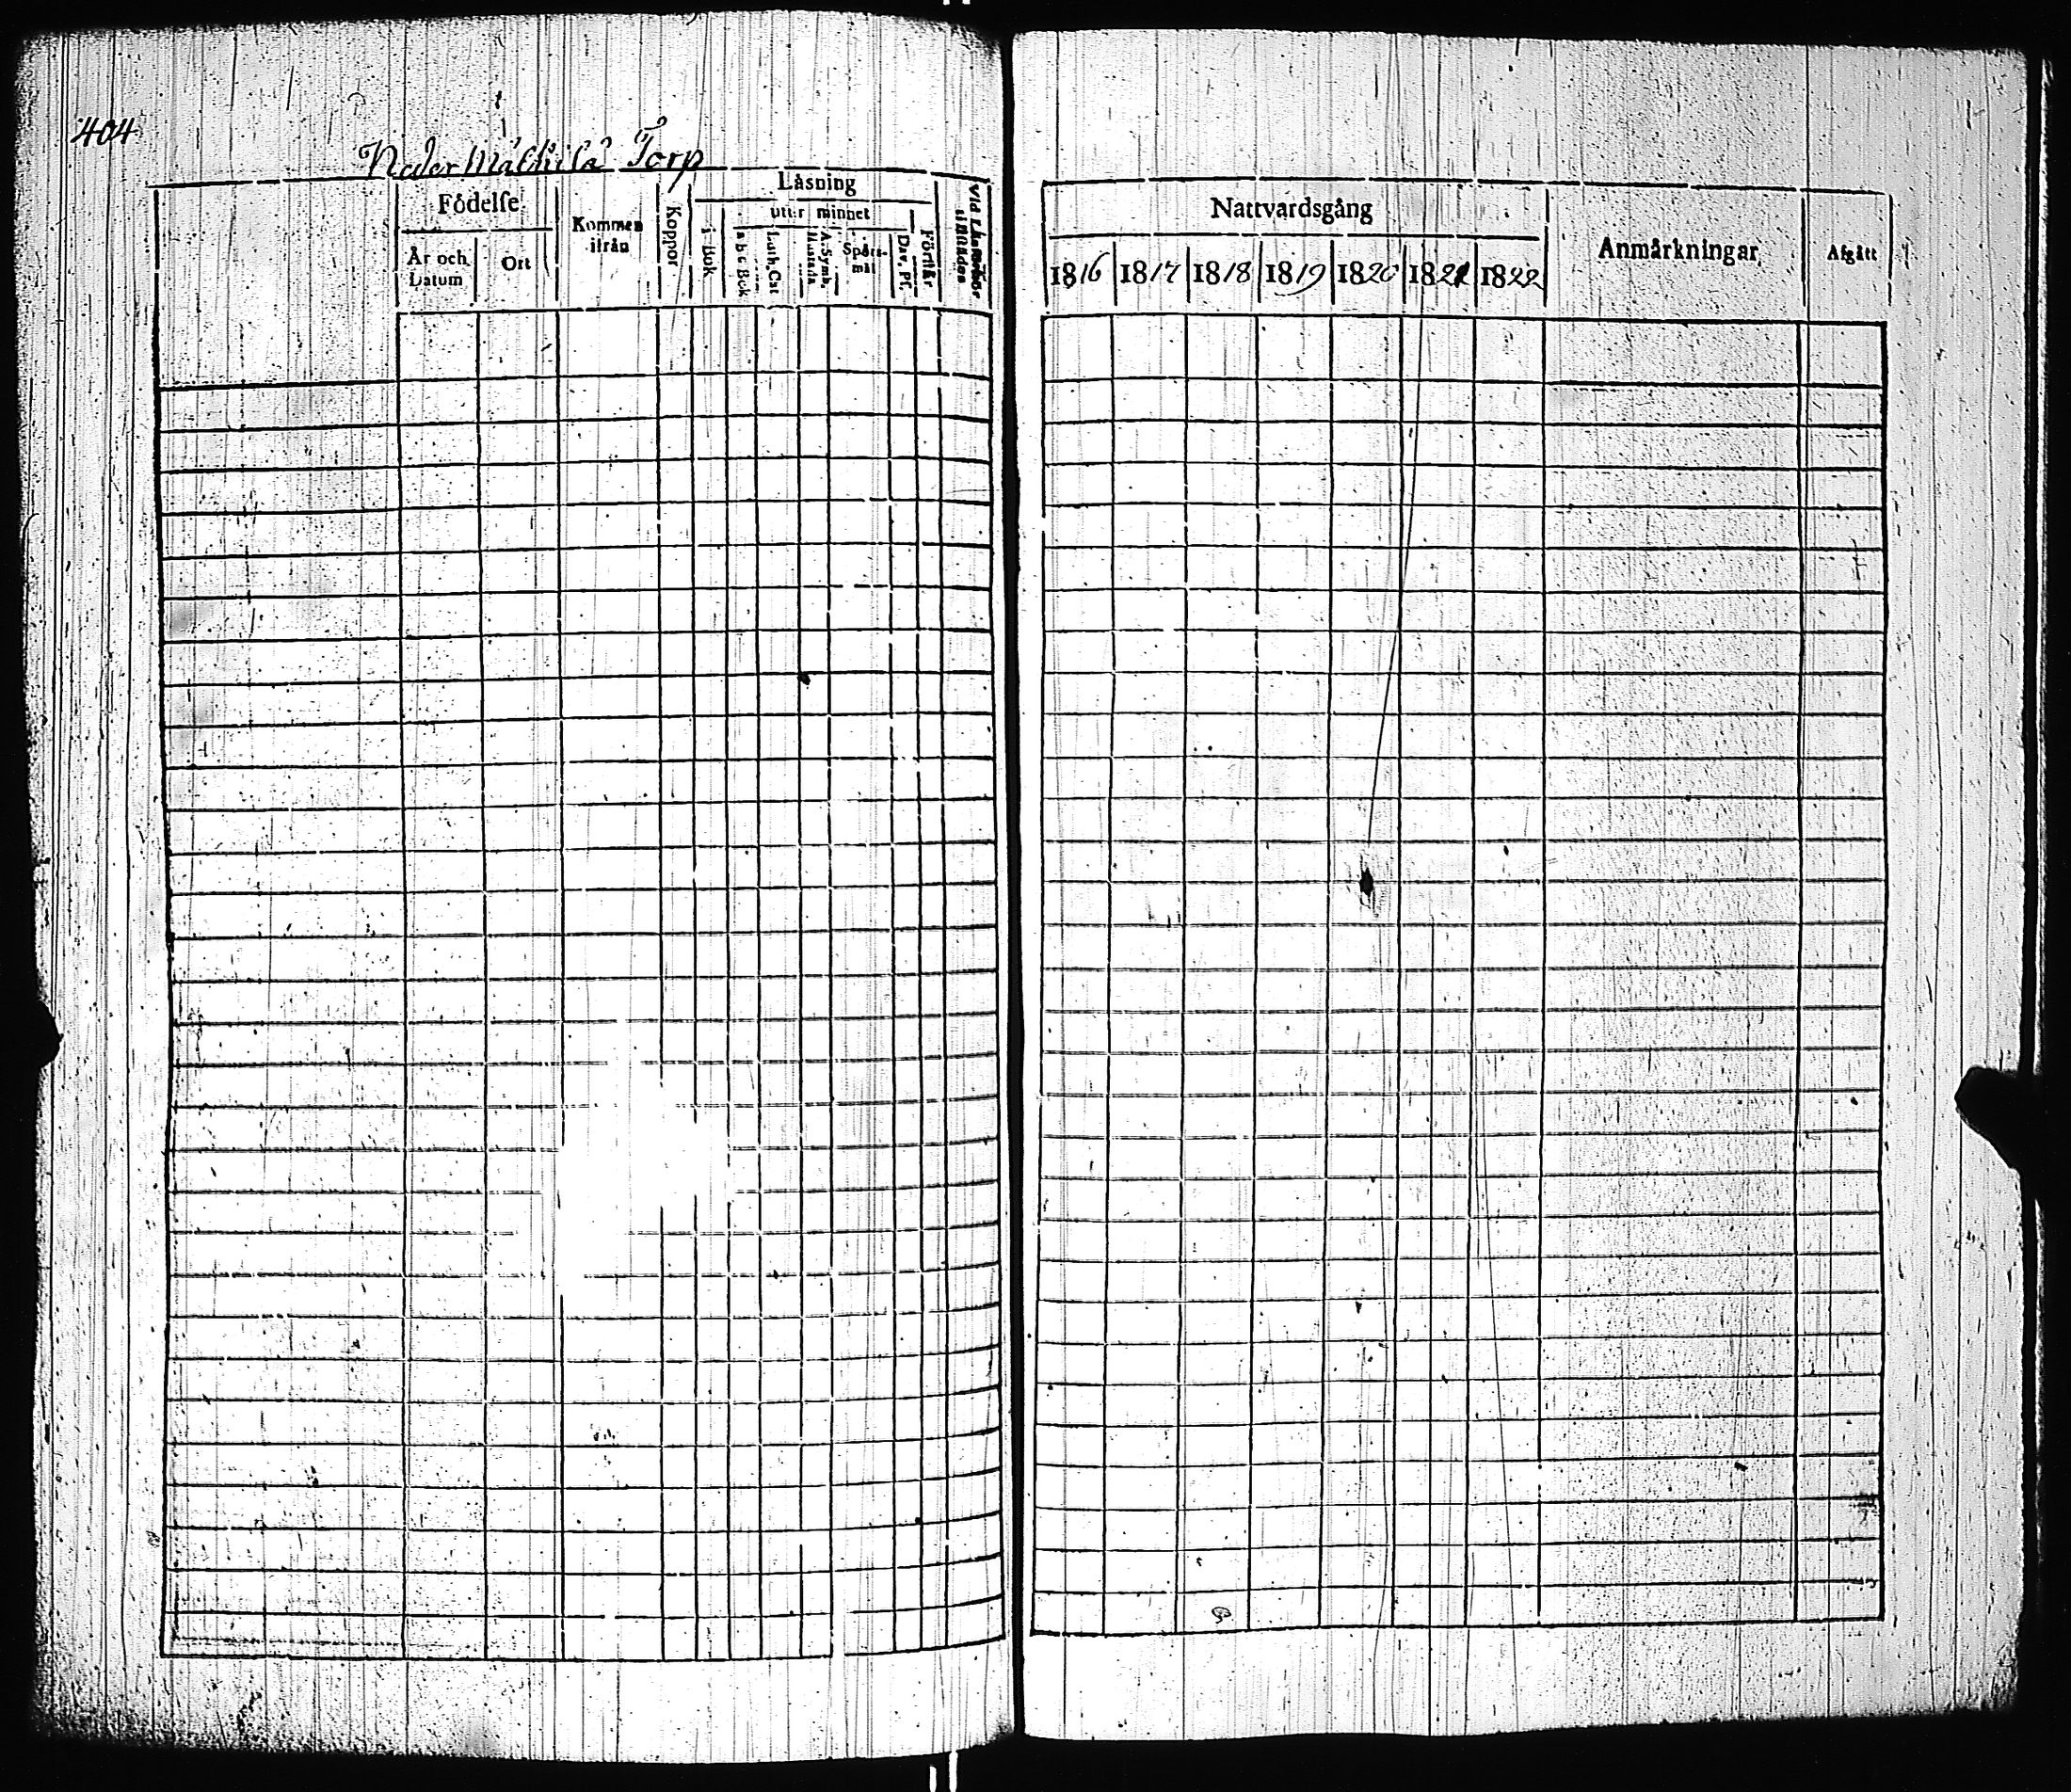 404
Neder Mathila Torp
Födelſe
År och Datum
Ort
Kommen ifrån
Koppor
Läsning
i Bok
utur minnet
a b c Bok
Luth. Cat
A. Symb.
Spörsmål
Dav. Pſ.
Förſtår
Nattvardsgång
1816 1817 1818 1819 1820 1821 1822
Anmärkningar
Afgått